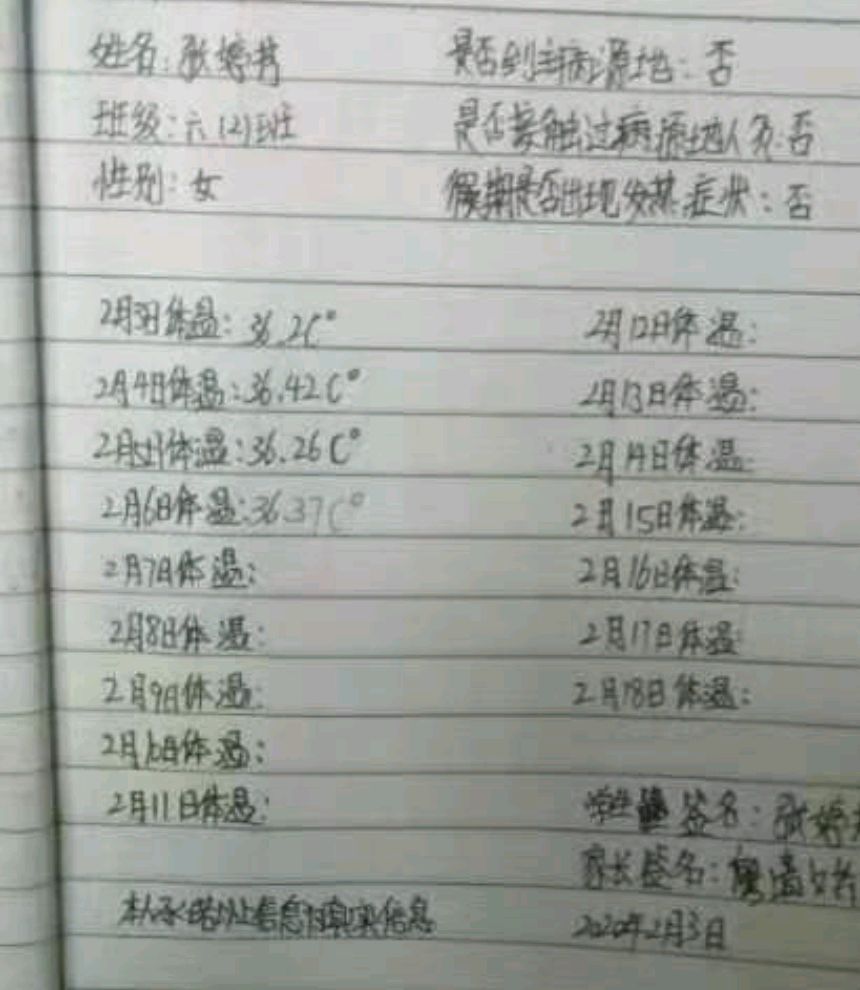 姓名：张婷 是否到访病源地：否
班级：六(2)班 是否接触过病源地人员：否
性别：女 假期是否出现发热症状：否
2月3日体温：36.2C° 2月12日体温：
2月4日体温：36.42C° 2月13日体温：
2月5日体温：36.26C° 2月14日体温：
2月6日体温：36.37C° 2月15日体温：
2月7日体温： 2月16日体温：
2月8日体温： 2月17日体温：
2月9日体温： 2月18日体温：
2月10日体温：
2月11日体温： 学生签名：张婷
家长签名：
本人承诺以上信息均真实信息 2020年2月3日